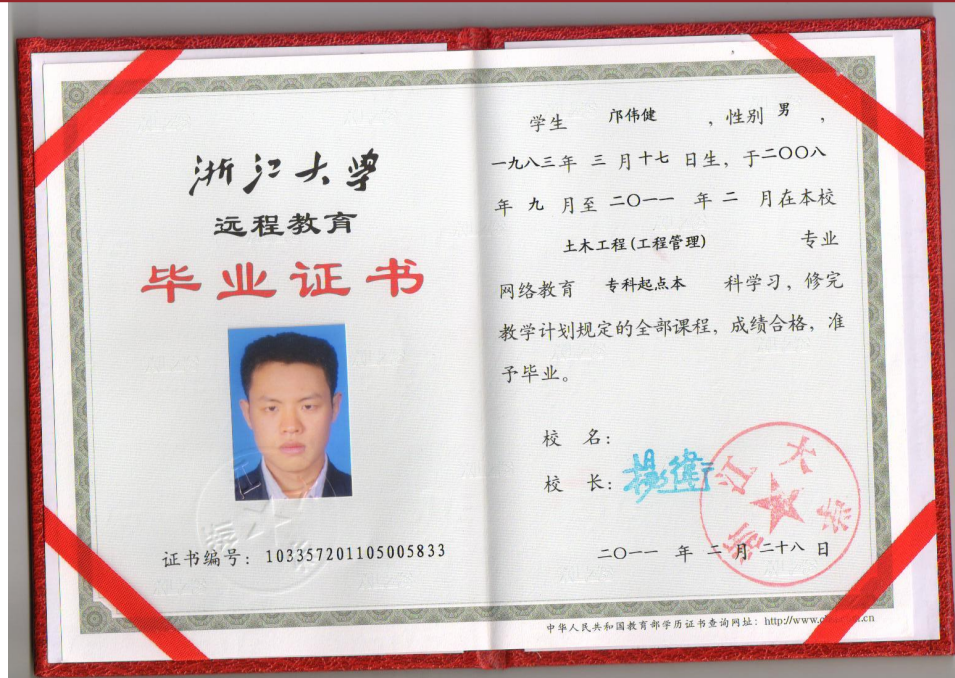 浙江大学
远程教育
毕业证书
证书编号：103357201105005833
学生 邝伟健 ，性别 男 ，
一九八三年 三 月十七 日生，于二〇〇八
年 九 月至 二〇一一 年 二 月在本校
土木工程(工程管理) 专业
网络教育 专科起点本 科学习，修完
教学计划规定的全部课程，成绩合格，准
予毕业。
校 名：
校 长：杨卫
浙江大学
二〇一一 年 二 月 二十八 日
中华人民共和国教育部学历证书查询网址：http://www.